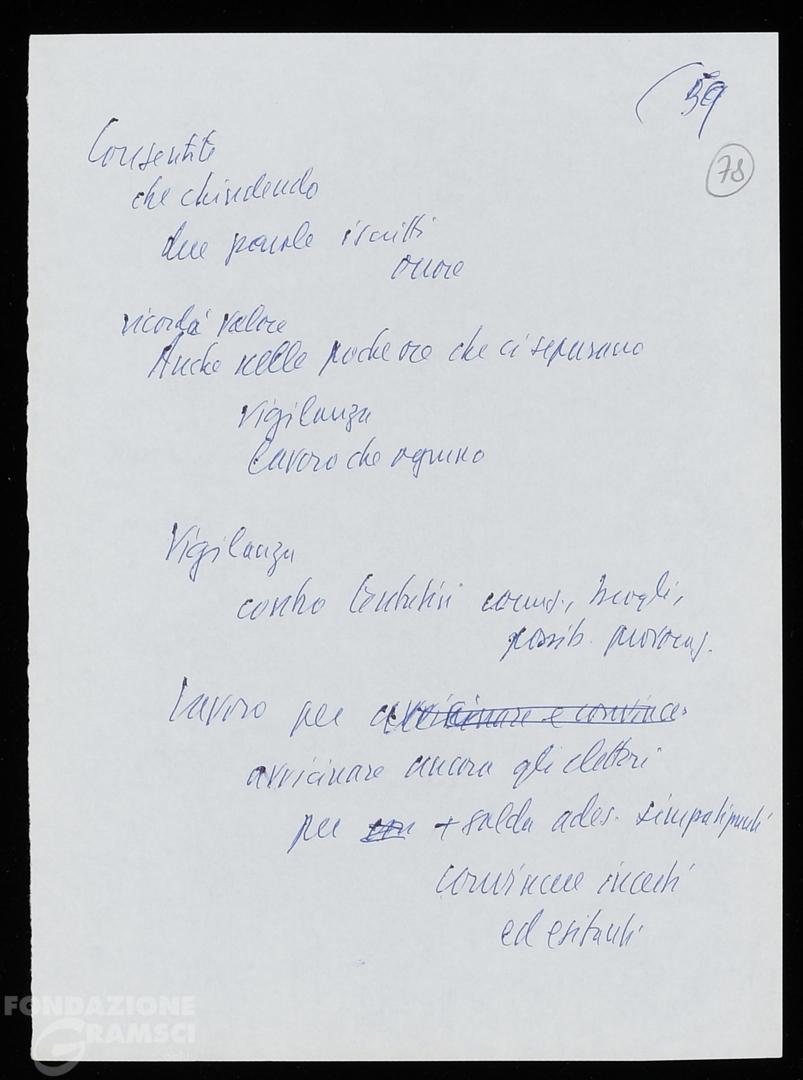 59
78
Consentite
che chiudendo
due parole iscritti
onore
ricordà valore
Anche nelle poche ore che ci separano
Vigilanza
lavoro che ognuno
Vigilanza
contro tentativi corruz., brogli,
possib. provocaz.
Lavoro per avvicinare e convince
avvicinare ancora gli elettori
per + salda ades. simpatizzanti
convincere incerti
ed esitanti
FONDAZIONE
GRAMSCI